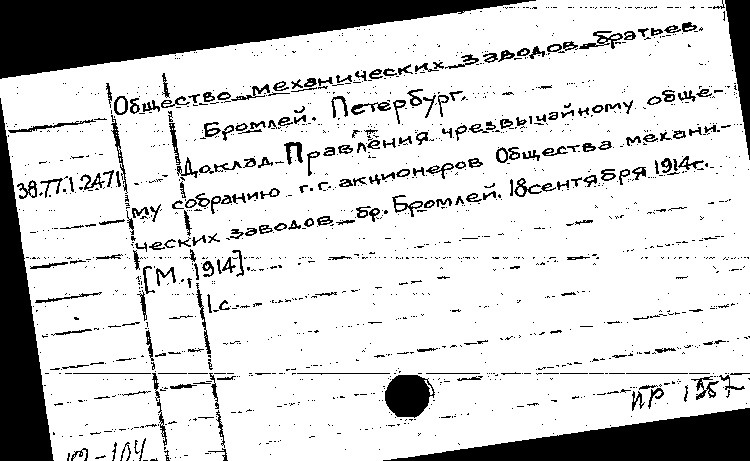 Общество механических заводов братьев
Бромлей. Петербург.
Доклад Правления чрезвычайному обще-
38.77.1.2471
му собранию г.г. акционеров Общества механи-
ческих заводов бр. Бромлей. 18 сентября 1914 г.
[М., 1914].
1 с.
ИР 1957